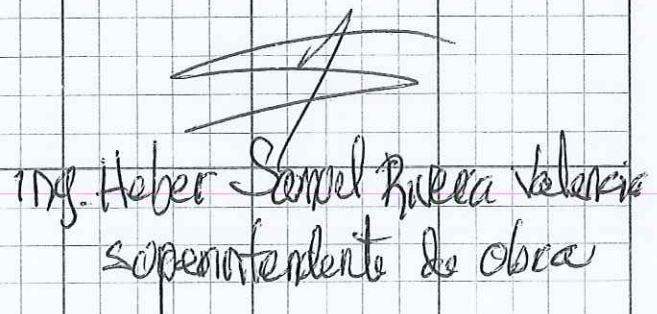 Ing. Heber Samuel Rivera Valencia
superintendente de obra